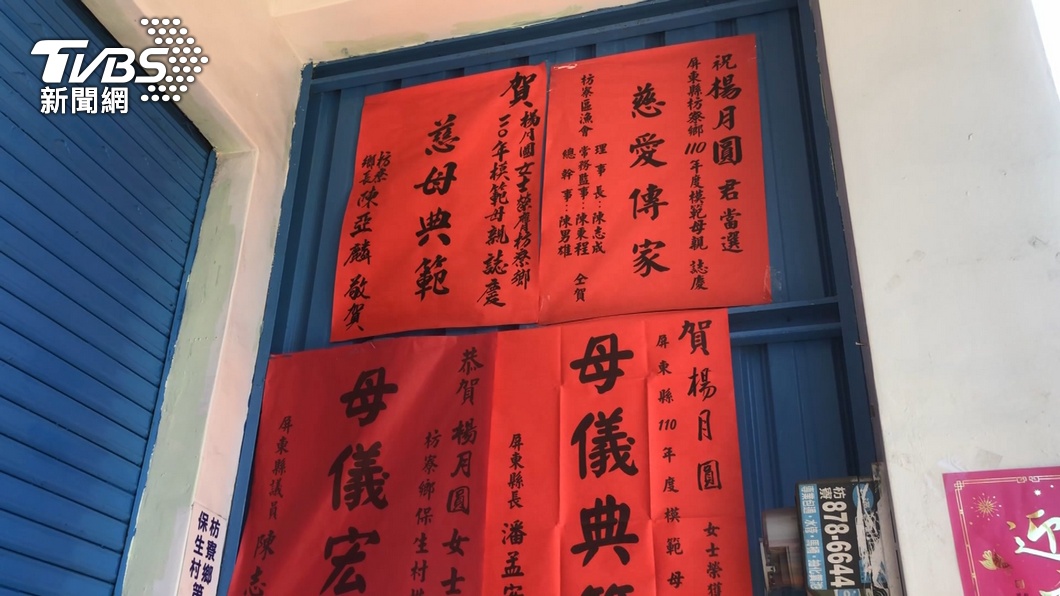 TVBS
新聞網
祝楊月圓君當選
屏東縣枋寮鄉110年度模範母親 誌慶
慈愛傳家
枋寮區漁會
理事長：陳志成
常務監事：陳東程
總幹事：陳男雄
仝賀
賀楊月圓女士榮膺枋寮鄉
一一〇年模範母親誌慶
慈母典範
枋寮
鄉長陳亞麟 敬賀
賀楊月圓 女士榮獲
屏東縣110年度模範母
母儀典範
屏東縣長 潘孟安
恭賀楊月圓女士
枋寮鄉保生村
母儀宏
屏東縣議員 陳志
枋寮鄉
保生村第
枋寮
878-6644
迎